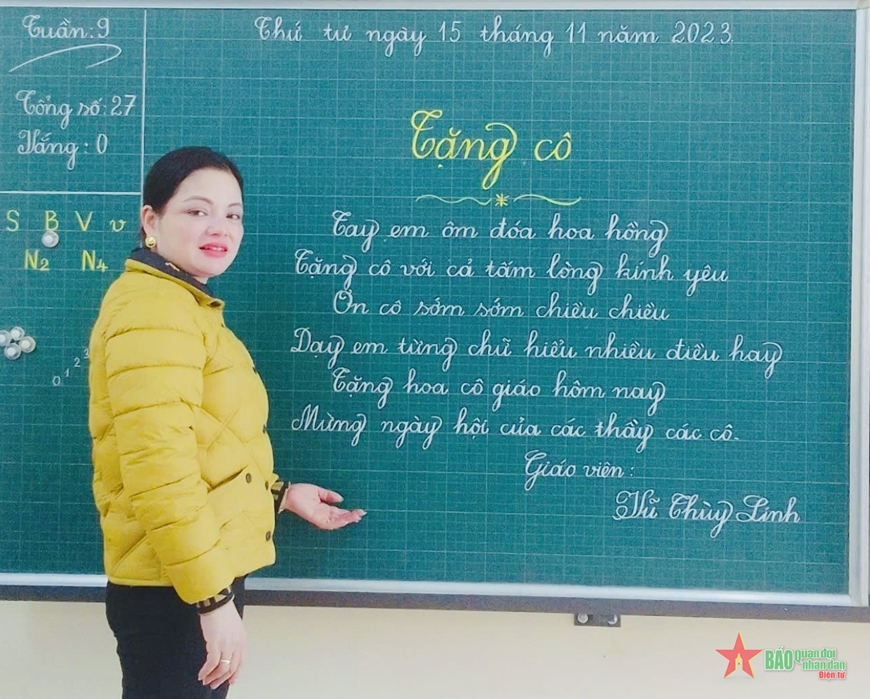 Tuần: 9
Thứ tư ngày 15 tháng 11 năm 2023
Tổng số: 27
Vắng: 0
Tặng cô
S B V v
N2 N4
Tay em ôm đóa hoa hồng
Tặng cô với cả tấm lòng kính yêu
Ơn cô sớm sớm chiều chiều
Dạy em từng chữ hiểu nhiều điều hay
Tặng hoa cô giáo hôm nay
Mừng ngày hội của các thầy các cô.
0 1 2 3
Giáo viên:
Vũ Thùy Linh
BÁO Quân đội nhân dân
Điện tử